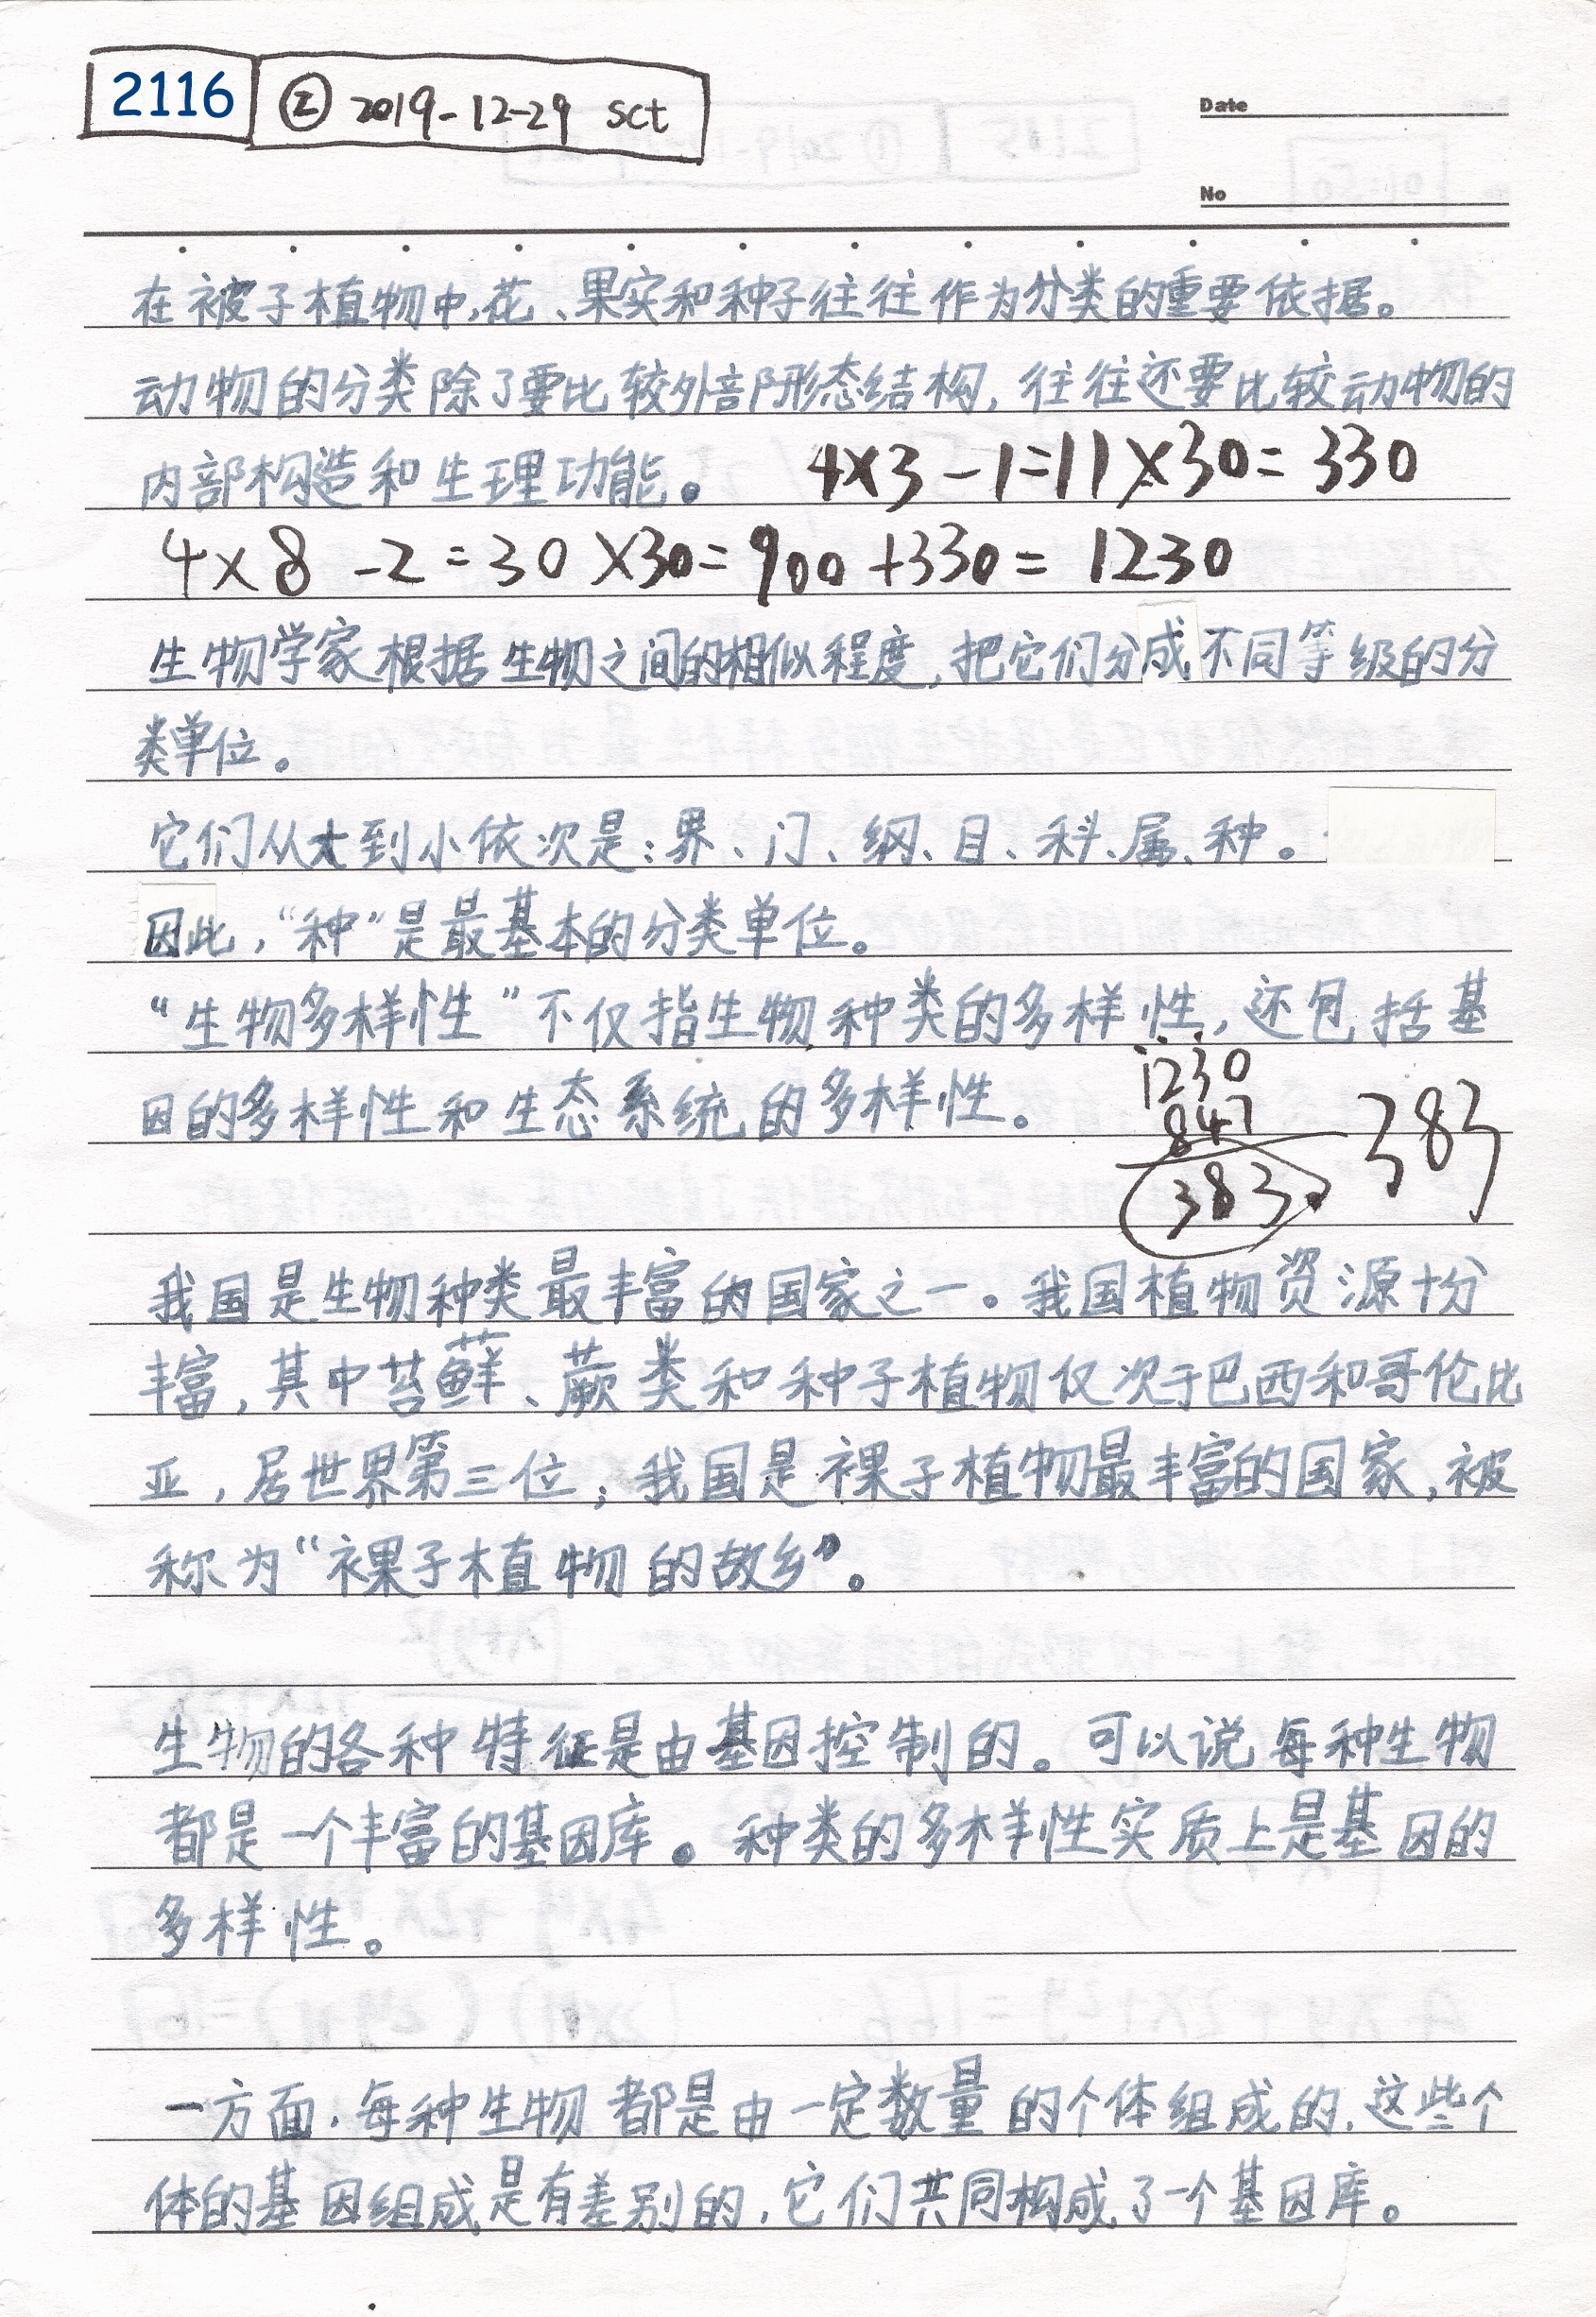 2116 ② 2019-12-29 sct
Date
No
在被子植物中,花、果实和种子往往作为分类的重要依据。
动物的分类除了要比较外部形态结构,往往还要比较动物的
内部构造和生理功能。 4×3-1=11×30=330
4×8-2=30×30=900+330=1230
生物学家根据生物之间的相似程度,把它们分成不同等级的分
类单位。
它们从大到小依次是:界、门、纲、目、科、属、种。
因此,“种”是最基本的分类单位。
“生物多样性”不仅指生物种类的多样性,还包括基
因的多样性和生态系统的多样性。
1230
847
383
383
我国是生物种类最丰富的国家之一。我国植物资源十分
丰富,其中苔藓、蕨类和种子植物仅次于巴西和哥伦比
亚,居世界第三位;我国是裸子植物最丰富的国家,被
称为“裸子植物的故乡”。
生物的各种特征是由基因控制的。可以说每种生物
都是一个丰富的基因库。种类的多样性实质上是基因的
多样性。
一方面,每种生物都是由一定数量的个体组成的,这些个
体的基因组成是有差别的,它们共同构成了一个基因库。